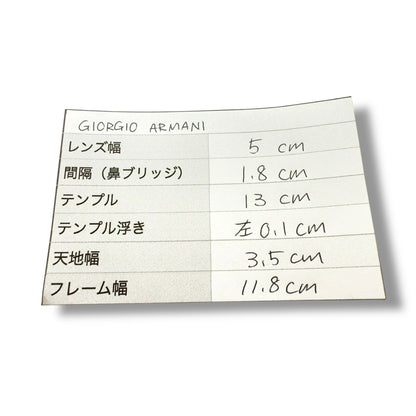 GIORGIO ARMANI
レンズ幅 5 cm
間隔（鼻ブリッジ） 1.8 cm
テンプル 13 cm
テンプル浮き 左0.1cm
天地幅 3.5 cm
フレーム幅 11.8 cm